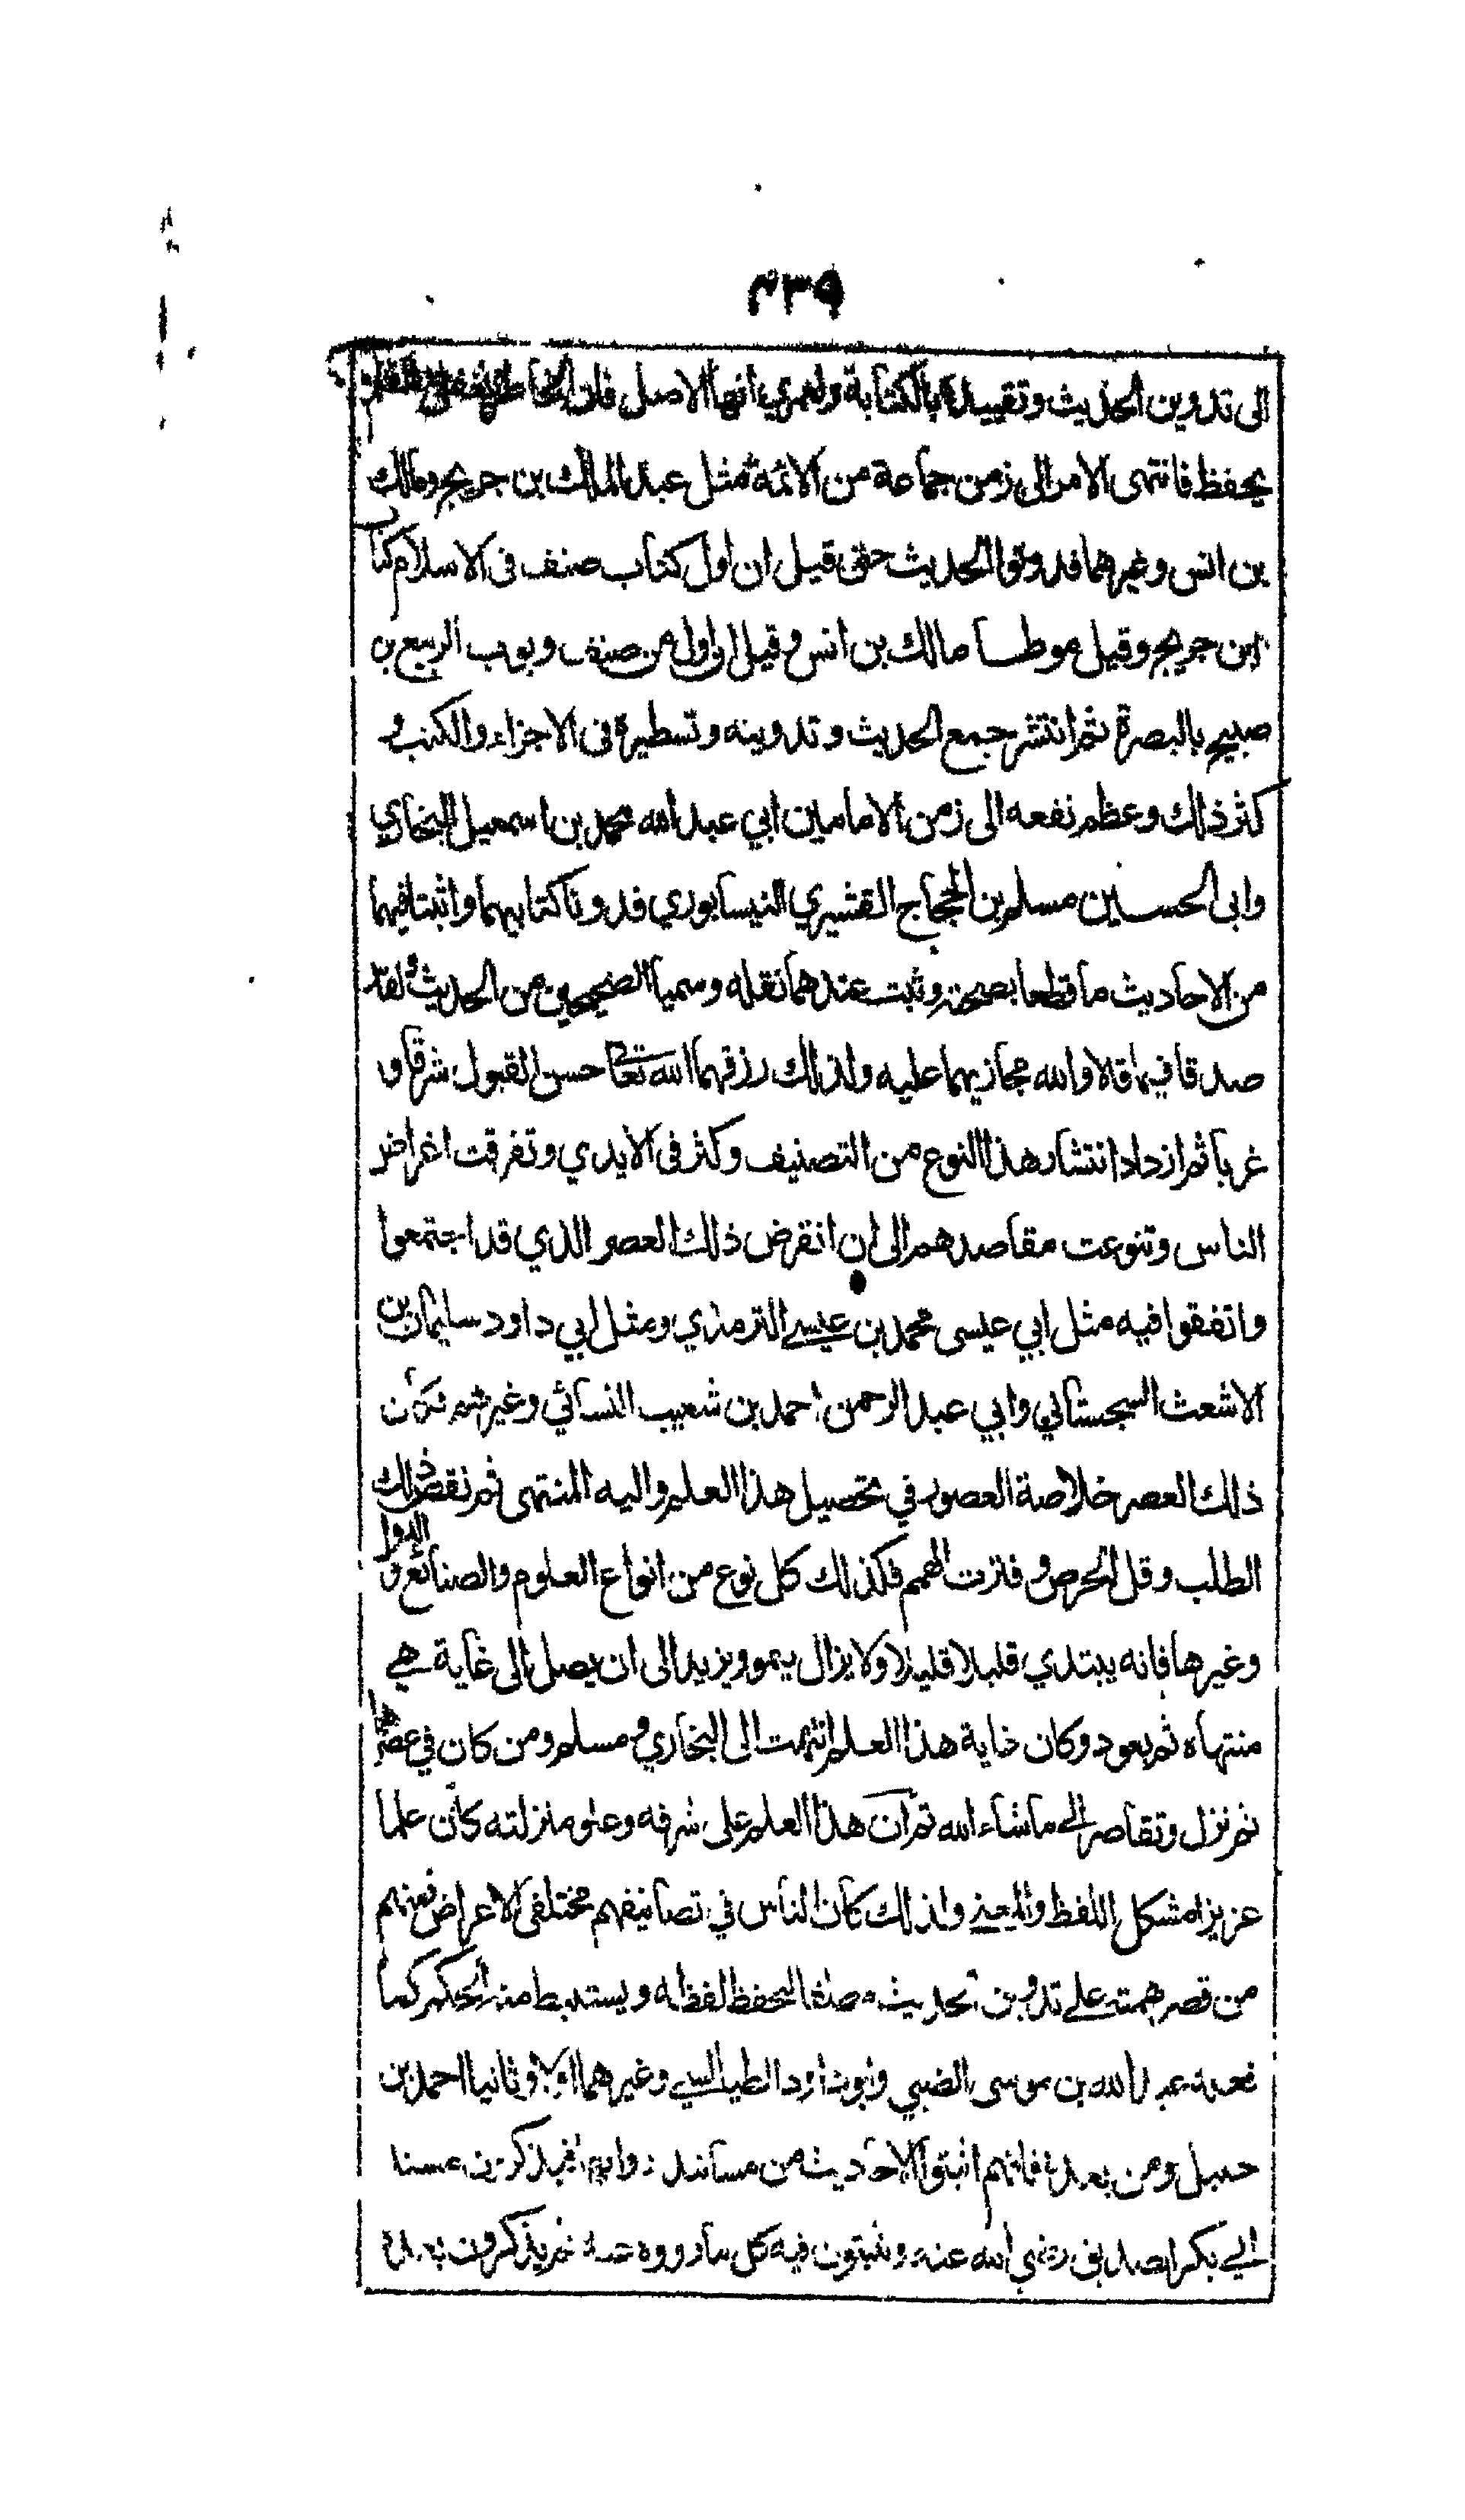 ٤٣٩
الى تدوين الحديث وتقييده بالكتابة ولعمري انها الاصل فان الخاطر
يحفظ فانتهى الامر الى زمن جماعة من الائمة مثل عبد الملك بن جريج ومالك
بن انس وغيرهما فدونوا الحديث حتى قيل ان اول كتاب صنف فى الاسلام كتاب
ابن جريج وقيل موطا مالك بن انس وقيل ان اول من صنف وبوب الربيع بن
صبيح بالبصرة ثم انتشر جمع الحديث وتدوينه وتسطيره فى الاجزاء والكتب و
كثر ذلك وعظم نفعه الى زمن الامامين ابي عبد الله محمد بن اسمعيل البخاري
وابى الحسين مسلم بن الحجاج القشيري النيسابوري فدونا كتابيهما واثبتا فيهما
من الاحاديث ما قطعا بصحته وثبت عندهما نقله وسميا الصحيحين من الحديث ولقد
صدقا فيما قالا والله مجازيهما عليه ولذلك رزقهما الله تعا حسن القبول شرقا و
غربا ثم ازداد انتشار هذا النوع من التصنيف وكثر فى الايدي وتفرقت اغراض
الناس وتنوعت مقاصدهم الى ان انقرض ذلك العصر الذي قد اجتمعوا
واتفقوا فيه مثل ابي عيسى محمد بن عيسى الترمذي ومثل ابي داود سليمان بن
الاشعث السجستاني وابي عبد الرحمن احمد بن شعيب النسائي وغيرهم فكان
ذلك العصر خلاصة العصور في تحصيل هذا العلم واليه المنتهى ثم نقص ذلك
الطلب وقل الحرص وفترت الهمم فكذلك كل نوع من انواع العلوم والصنائع والدول
وغيرها فانه يبتدي قليلا قليلا ولا يزال ينمو ويزيد الى ان يصل الى غاية هي
منتهاه ثم يعود وكان غاية هذا العلم انتهت الى البخاري ومسلم ومن كان في عصرهما
ثم نزل وتقاصر الى ما شاء الله ثم ان هذا العلم على شرفه وعلو منزلته كان علما
عزيزا مشكل اللفظ والمعنى ولذلك كان الناس في تصانيفهم مختلفى الاغراض فمنهم
من قصر همته على تدوين الحديث مطلقا ليحفظ لفظه ويستنبط منه الحكم كما
فعله عبد الله بن موسى الضبي وابو داود الطيالسي وغيرهما اولا وثانيا احمد بن
حنبل ومن بعده فانهم اثبتوا الاحاديث من مسانيد رواتها فيذكرون مسند
ابي بكر الصديق رضي الله عنه ويثبتون فيه كل ما رووه عنه ثم يذكرون بعده